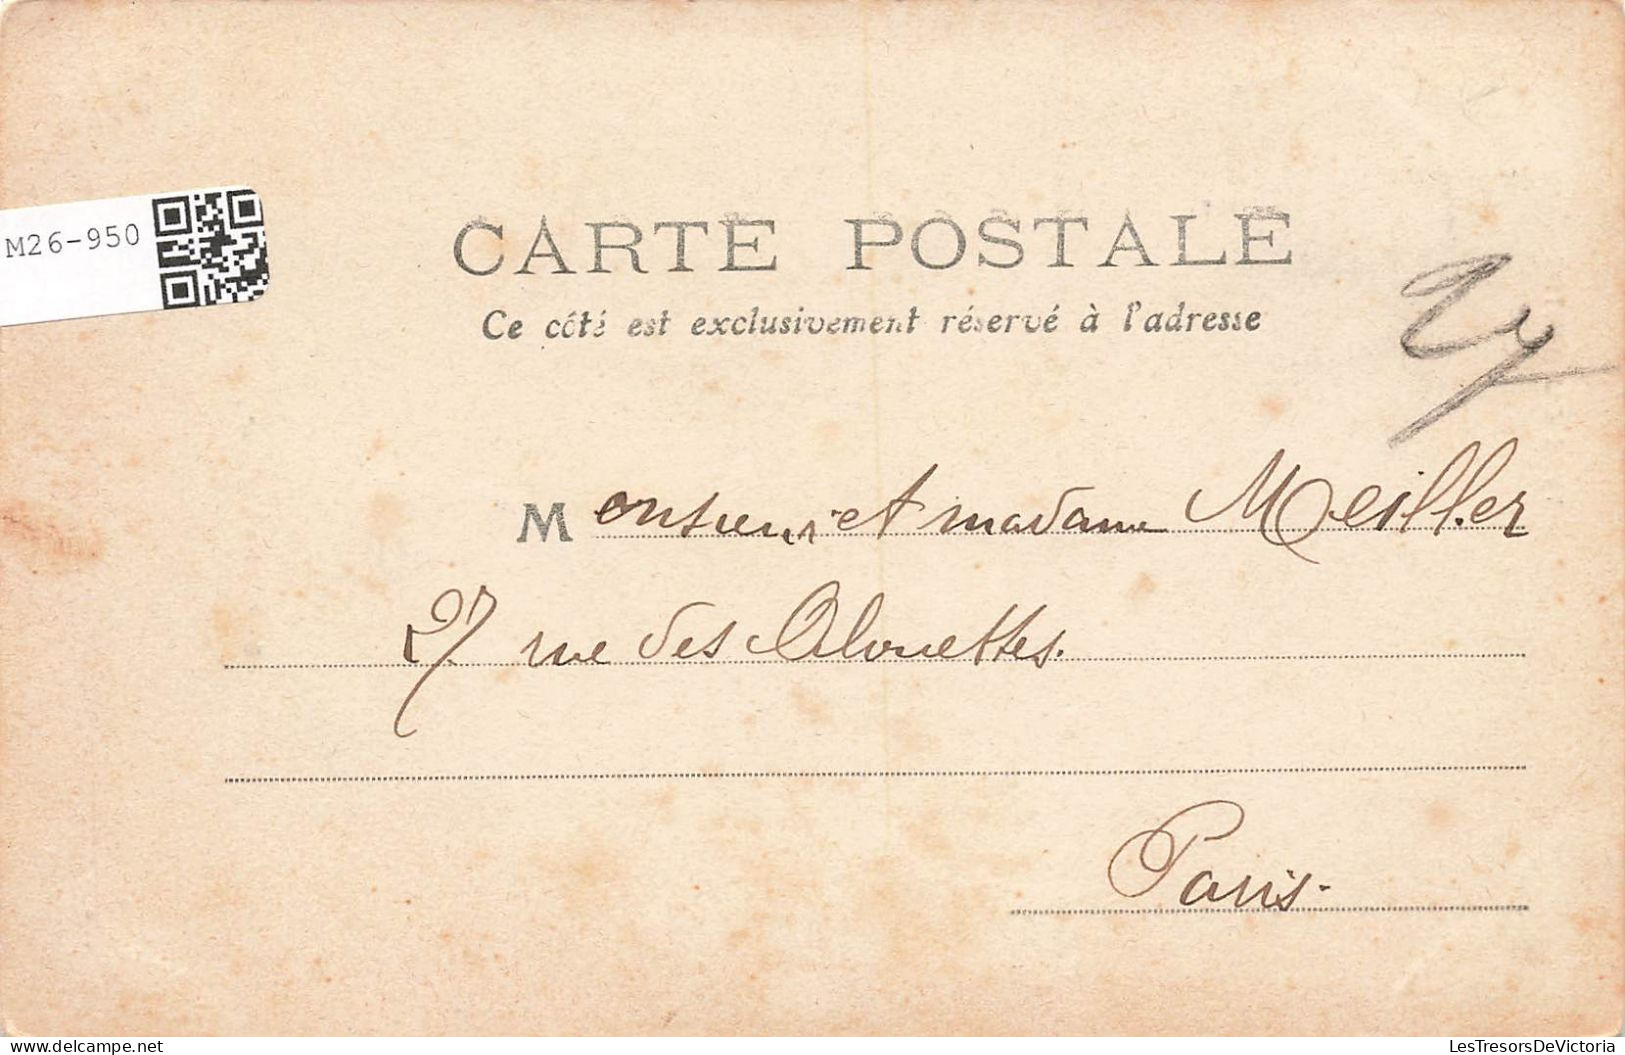 M26-950
CARTE POSTALE
Ce côté est exclusivement réservé à l'adresse
Monsieur et madame Meiller
27 rue des Alouettes.
Paris.
delcampe.net
LesTresorsDeVictoria